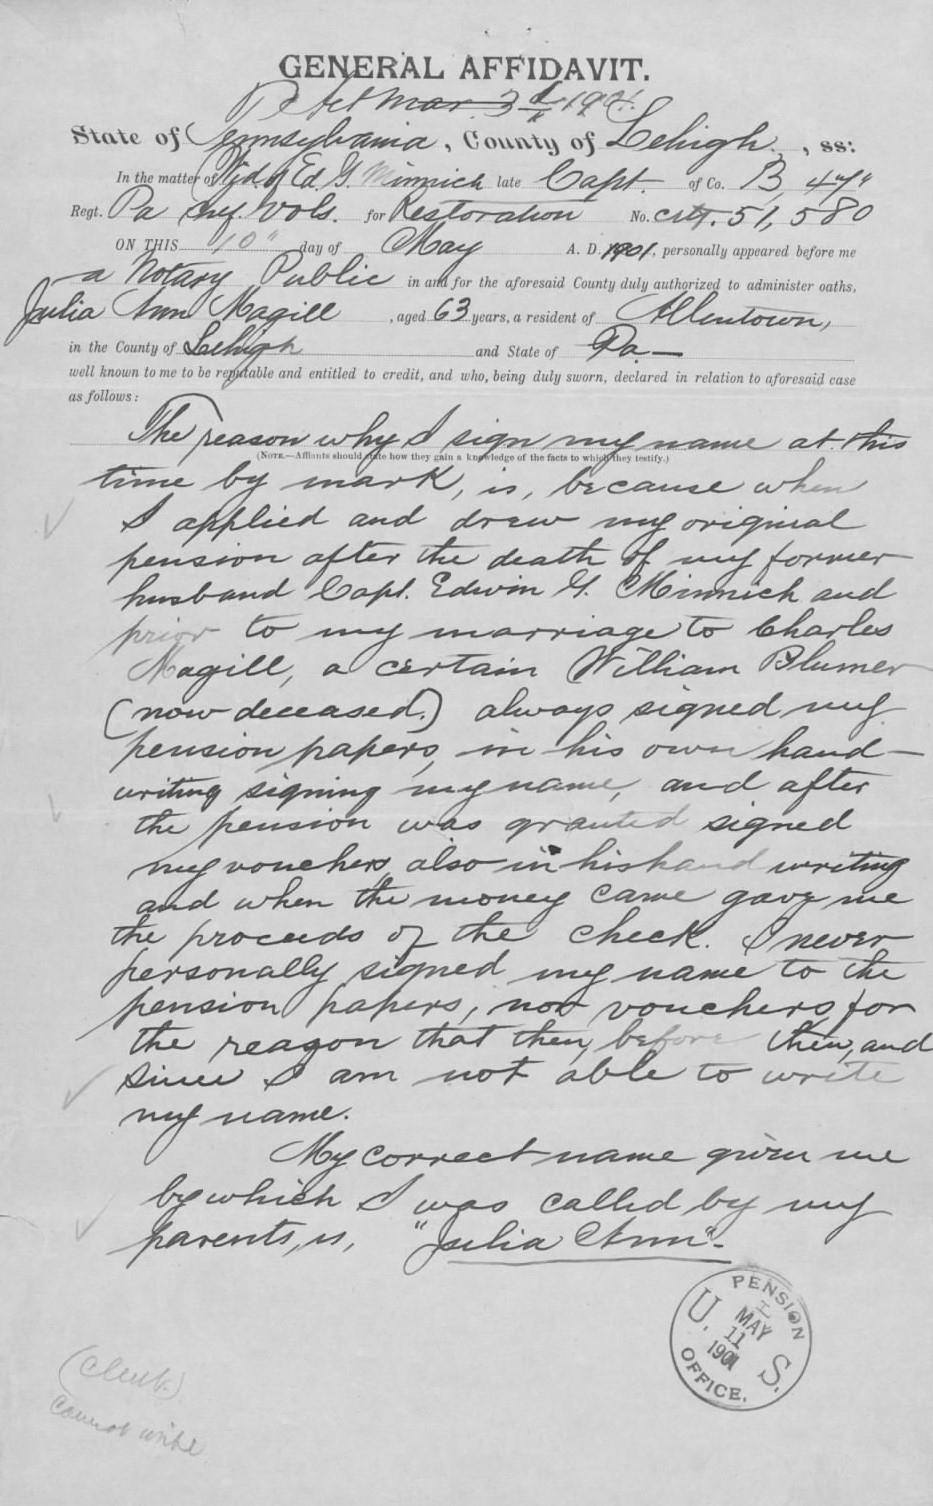 GENERAL AFFIDAVIT.
Mar. 3d 1901.
State of Pennsylvania, County of Lehigh, ss:
In the matter of Wid of Ed. G. Minnich late Capt. of Co. B, 47"
Regt. Pa Inf. Vols. for Restoration No. Crtf. 51,580
ON THIS 10" day of May A. D. 1901, personally appeared before me
a Notary Public in and for the aforesaid County duly authorized to administer oaths,
Julia Ann Magill, aged 63 years, a resident of Allentown,
in the County of Lehigh and State of Pa—
well known to me to be reputable and entitled to credit, and who, being duly sworn, declared in relation to aforesaid case
as follows:
The reason why I sign my name at this
(NOTE.—Affiants should state how they gain a knowledge of the facts to which they testify.)
time by mark, is, because when
I applied and drew my original
pension after the death of my former
husband Capt. Edwin G. Minnich and
prior to my marriage to Charles
Magill, a certain William Blumer
(now deceased.) always signed my
pension papers, in his own hand-
writing signing my name, and after
the pension was granted signed
my vouchers also in his hand writing
and when the money came gave me
the proceeds of the check. I never
personally signed my name to the
pension papers, nor vouchers, for
the reason that then, before then, and
since I am not able to write
my name.
My correct name given me
by which I was called by my
parents, is, "Julia Ann"-
U. S. PENSION OFFICE.
MAY
11
1901
(Clerk.)
cannot write